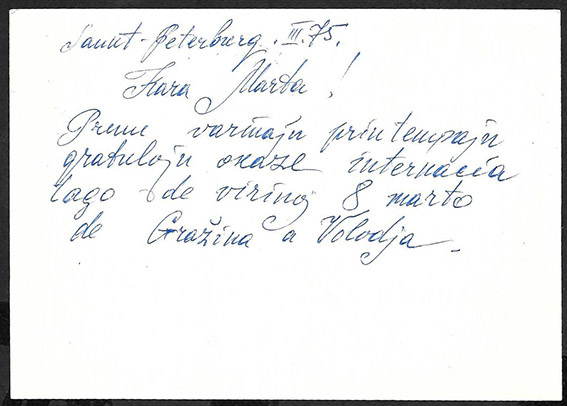 Sankt-Peterburg. III.75.
Kara Marta!
Preme varmajn printempajn
gratulojn okaze internacia
tago de virinoj 8 marto
de Gražina a Volodja